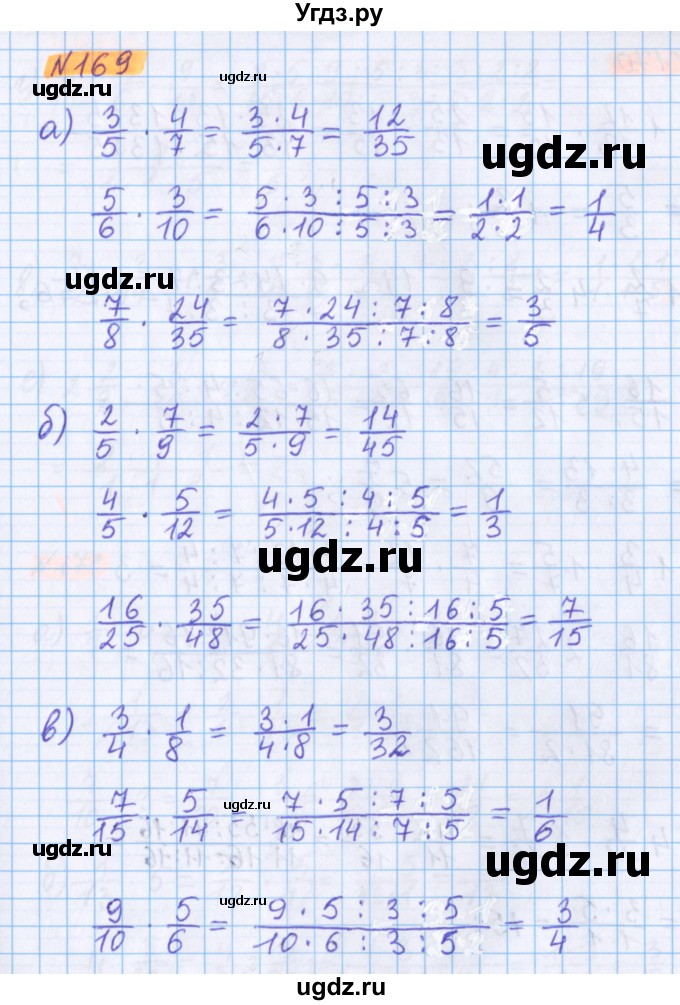 Угдз.ру
№169
ugdz.ru
ugdz.ru
а) 3/5 · 4/7 = 3·4/5·7 = 12/35
ugdz.ru
5/6 · 3/10 = 5·3:5:3/6·10:5:3 = 1·1/2·2 = 1/4
ugdz.ru
7/8 · 24/35 = 7·24:7:8/8·35:7:8 = 3/5
б) 2/5 · 7/9 = 2·7/5·9 = 14/45
4/5 · 5/12 = 4·5:4:5/5·12:4:5 = 1/3
ugdz.ru
16/25 · 35/48 = 16·35:16:5/25·48:16:5 = 7/15
в) 3/4 · 1/8 = 3·1/4·8 = 3/32
7/15 · 5/14 = 7·5:7:5/15·14:7:5 = 1/6
ugdz.ru
ugdz.ru
ugdz.ru
9/10 · 5/6 = 9·5:3:5/10·6:3:5 = 3/4
ugdz.ru